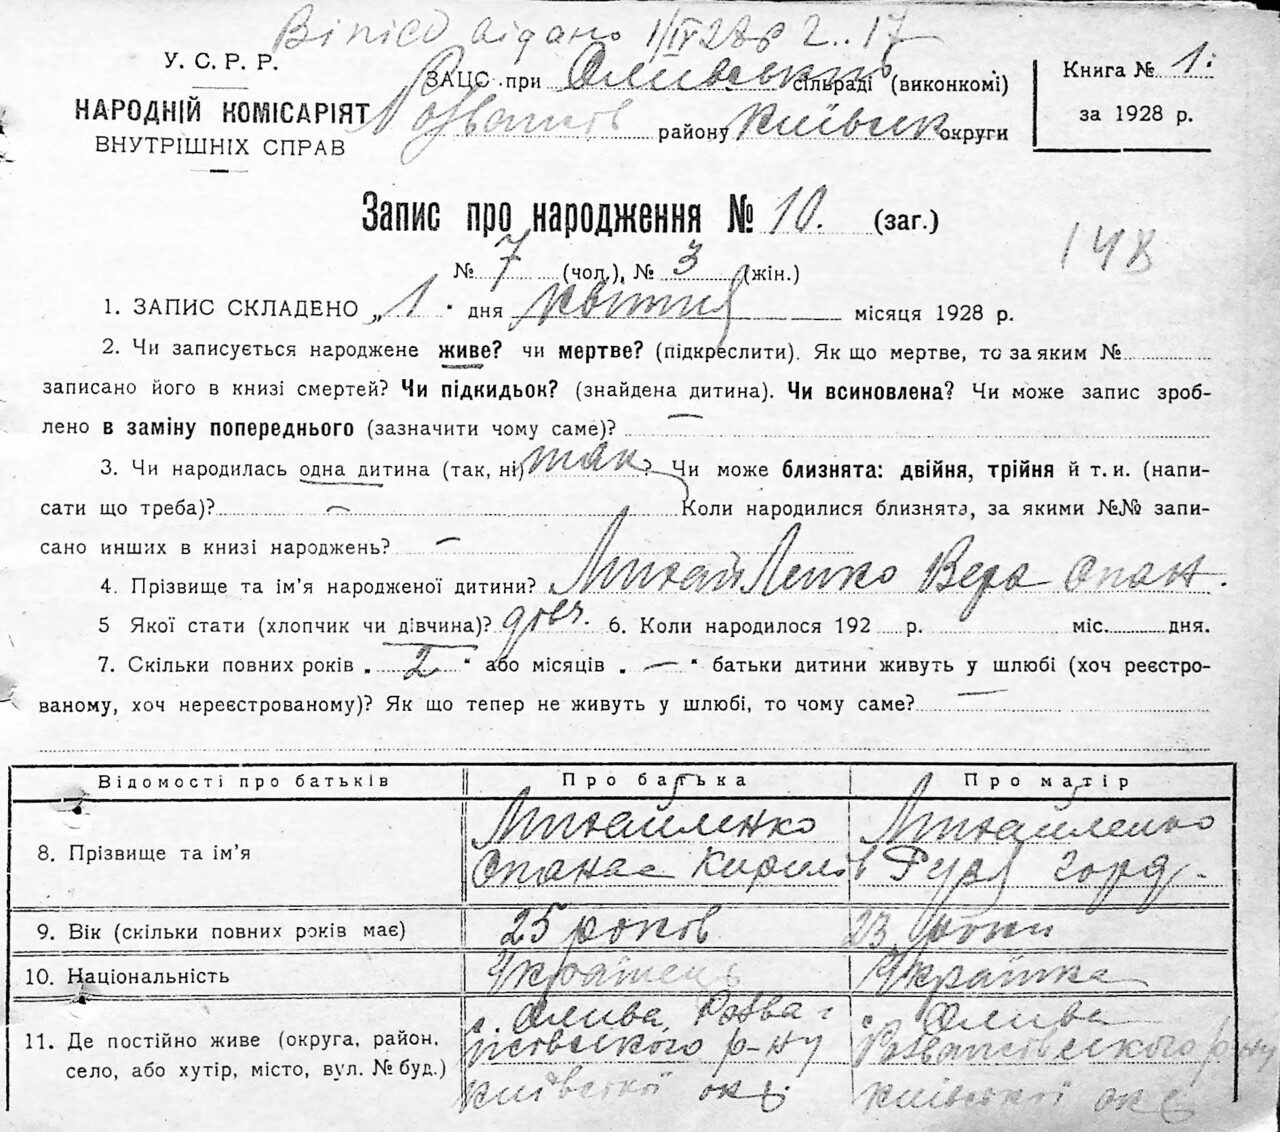 Віпісь видано 1/IV 28 р 2.. 17
У. С. Р. Р.
НАРОДНІЙ КОМІСАРІЯТ
ВНУТРІШНІХ СПРАВ
ЗАЦС при Оливській сільраді (виконкомі)
Розважів району Київськ округи
Книга № 1.
за 1928 р.
Запис про народження № 10. (заг.)
148
№ 7 (чол.), № 3 (жін.)
1. ЗАПИС СКЛАДЕНО „1" дня квітня місяця 1928 р.
2. Чи записується народжене живе? чи мертве? (підкреслити). Як що мертве, то за яким №
записано його в книзі смертей? Чи підкидьок? (знайдена дитина). Чи всиновлена? Чи може запис зроб-
лено в заміну попереднього (зазначити чому саме)? —
3. Чи народилась одна дитина (так, ні) так? Чи може близнята: двійня, трійня й т. и. (напи-
сати що треба)? — Коли народилися близнята, за якими №№ запи-
сано инших в книзі народжень? —
4. Прізвище та ім'я народженої дитини? Михайленко Вера Опан.
5 Якої стати (хлопчик чи дівчина)? дівч. 6. Коли народилося 192 р. міс. дня.
7. Скільки повних років „2" або місяців „—" батьки дитини живуть у шлюбі (хоч реєстро-
ваному, хоч нереєстрованому)? Як що тепер не живуть у шлюбі, то чому саме? —
Відомості про батьків Про батька Про матір
8. Прізвище та ім'я Михайленко Михайленко
Опанас Кирилів горд.
9. Вік (скільки повних років має) 25 років 23 роки
10. Національність Українець Українка
11. Де постійно живе (округа, район, с. Олива, Розва- с. Олива
село, або хутір, місто, вул. № буд.) жівського р-ну Розважівського р-ну
Київської окр. Київської окр